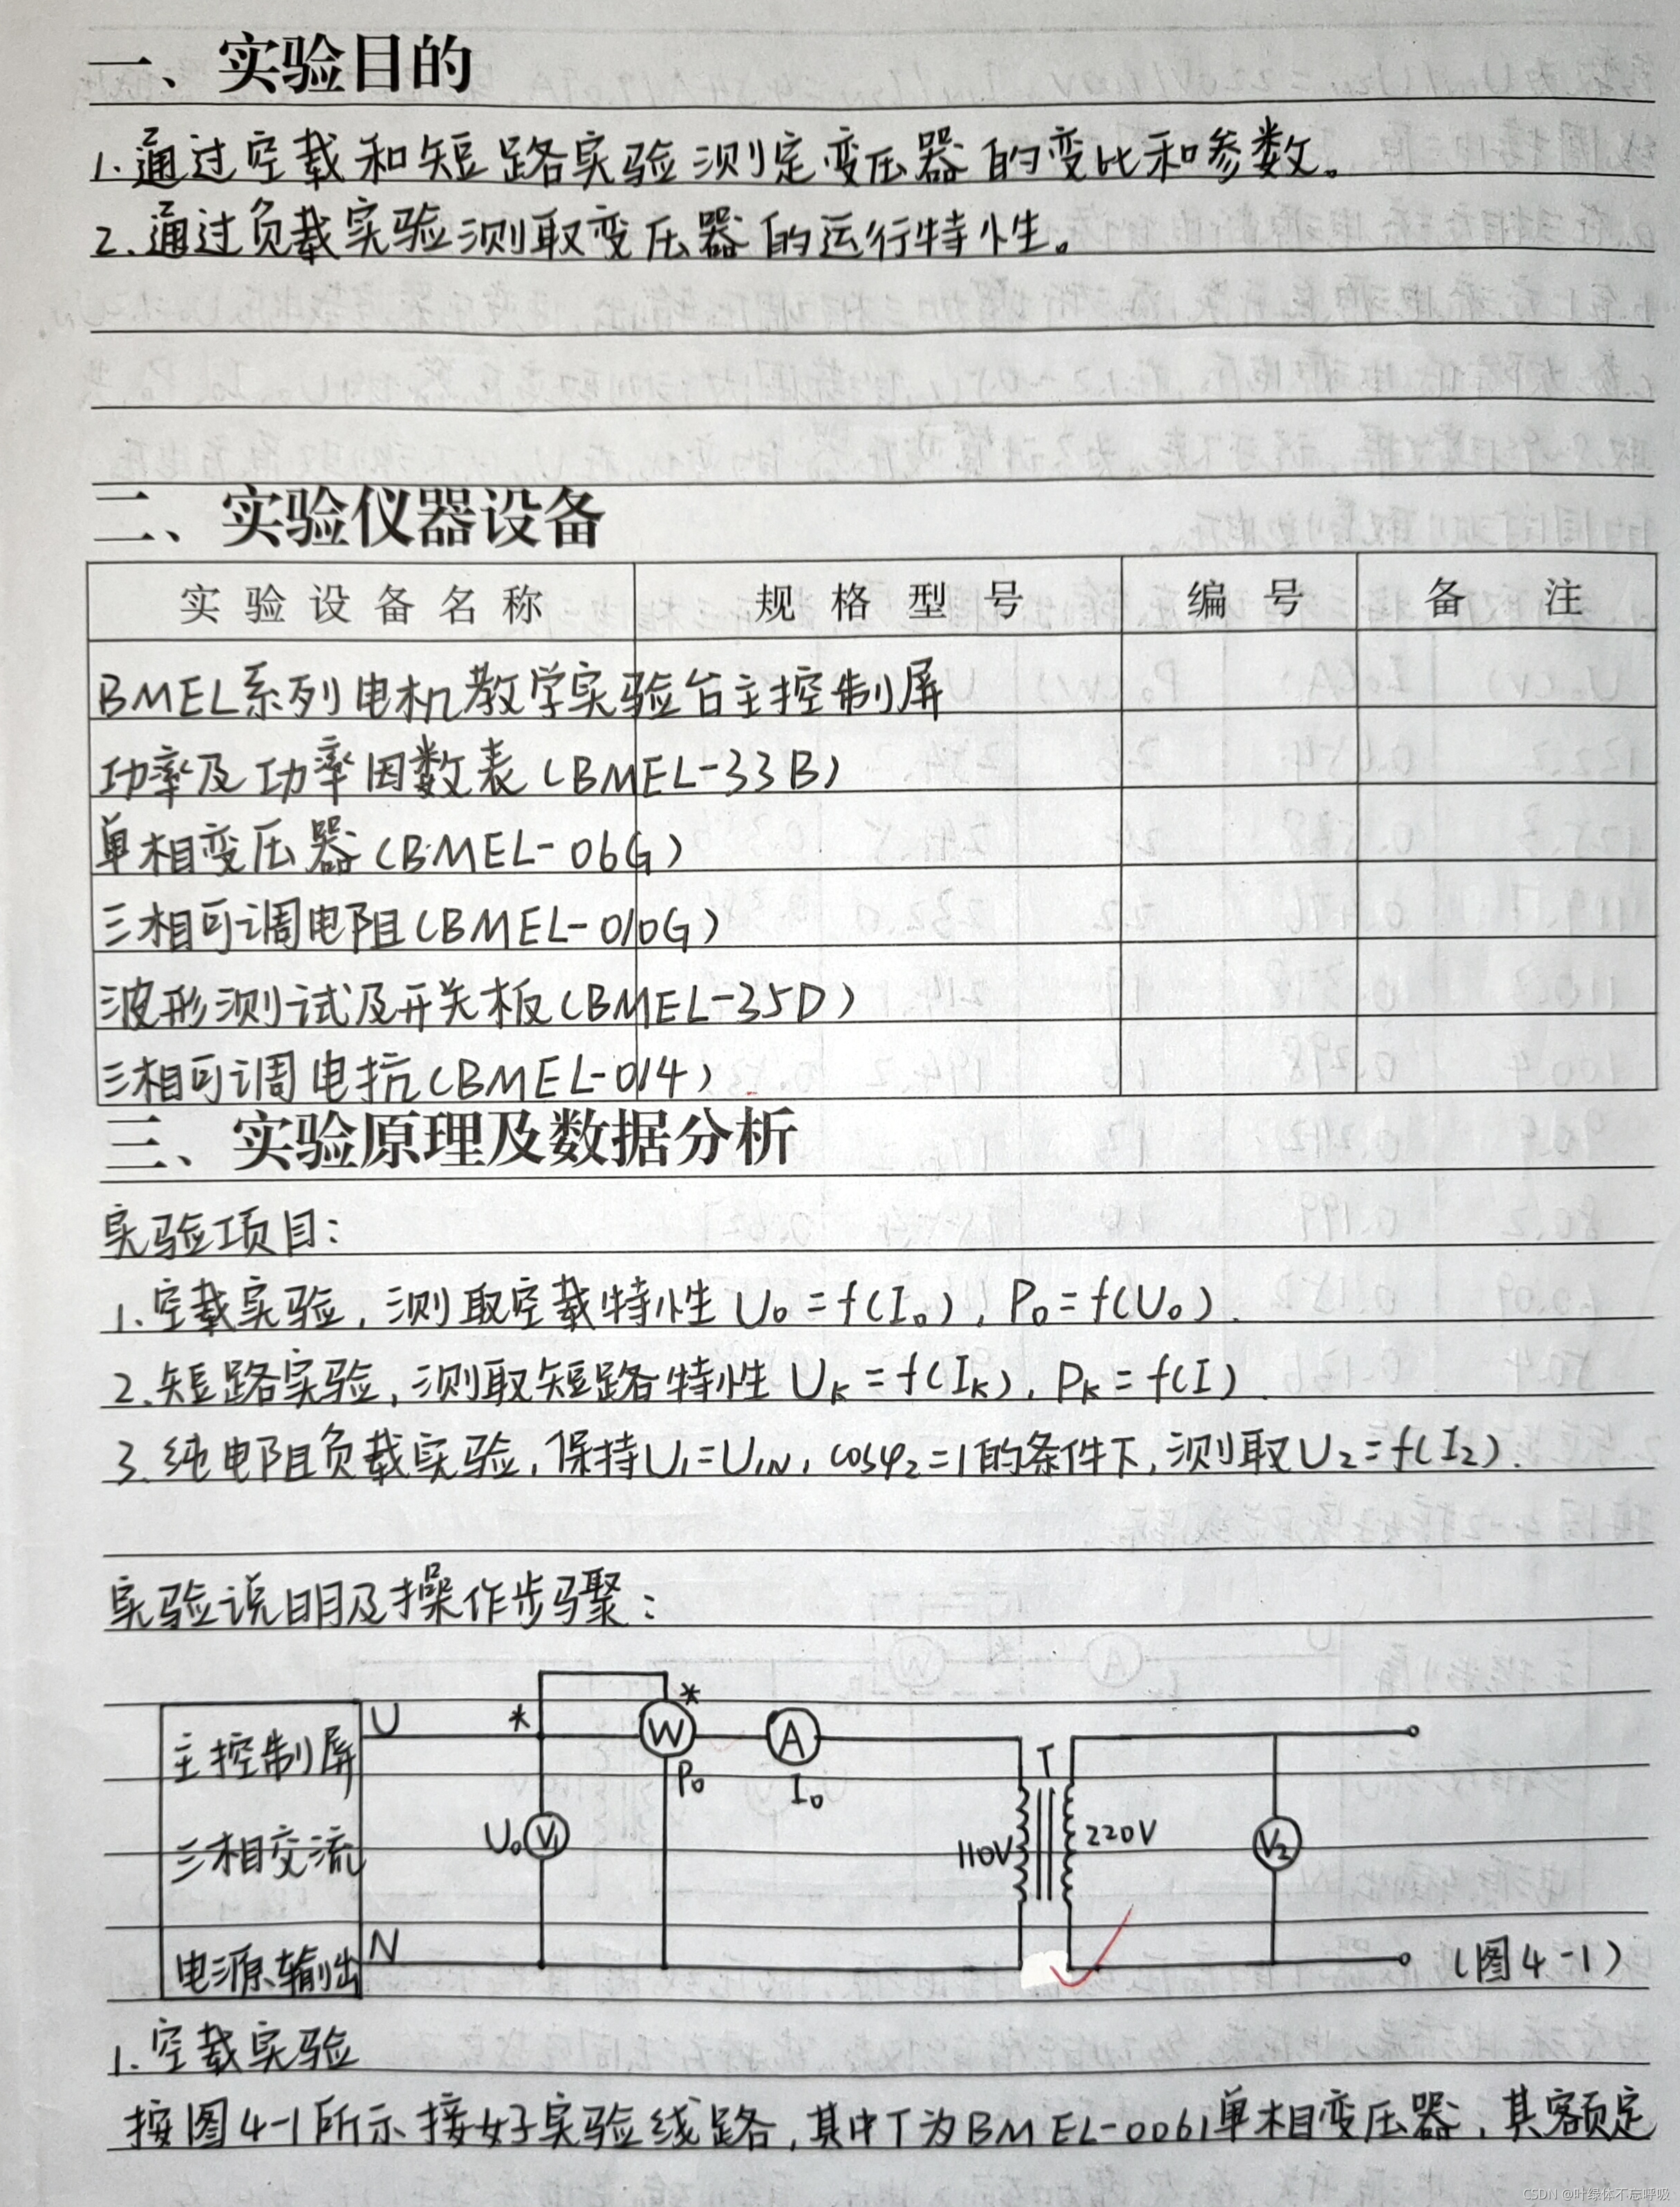 一、实验目的
1.通过空载和短路实验测定变压器的变比和参数。
2.通过负载实验测取变压器的运行特性。
二、实验仪器设备
实验设备名称 规格型号 编号 备注
BMEL系列电机教学实验台主控制屏
功率及功率因数表(BMEL-33B)
单相变压器(BMEL-06G)
三相可调电阻(BMEL-010G)
波形测试及开关板(BMEL-35D)
三相可调电抗(BMEL-014)
三、实验原理及数据分析
实验项目:
1.空载实验,测取空载特性 U₀=f(I₀), P₀=f(U₀).
2.短路实验,测取短路特性 Uₖ=f(Iₖ), Pₖ=f(I).
3.纯电阻负载实验,保持U₁=U₁N, cosφ₂=1的条件下,测取U₂=f(I₂).
实验说明及操作步骤:
U * * W A T
主控制屏
P₀ I₀
三相交流 U₀ V₁ 110V 220V V₂
电源输出 N (图4-1)
1.空载实验
按图4-1所示接好实验线路,其中T为BMEL-0061单相变压器,其额定
CSDN @叶绿体不忘呼吸